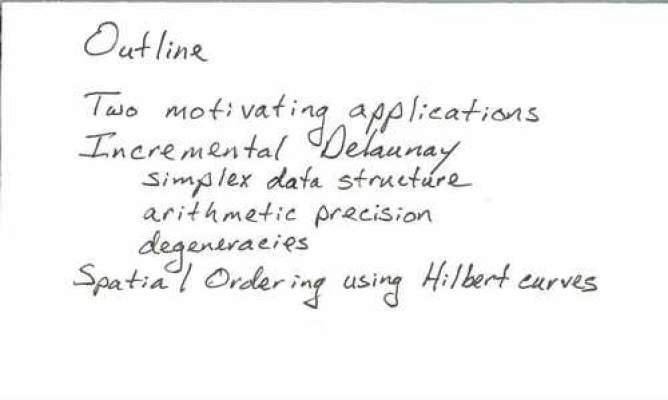 Outline
Two motivating applications
Incremental Delaunay
simplex data structure
arithmetic precision
degeneracies
Spatial Ordering using Hilbert curves